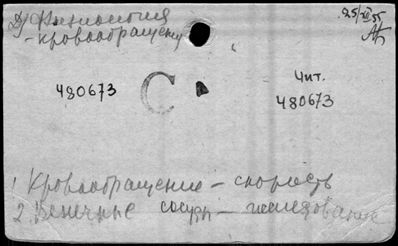 Д) Физиология
- кровообращение
25/XII 55
480673
С
Чит.
480673
1 Кровообращение – скорость
2. Венечные сосуды – исследование